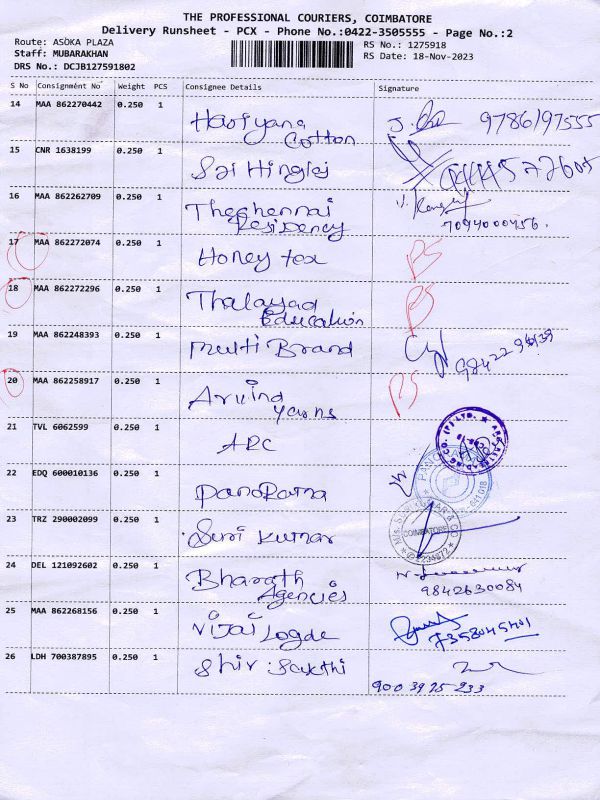 THE PROFESSIONAL COURIERS, COIMBATORE
Delivery Runsheet - PCX - Phone No.:0422-3505555 - Page No.:2
Route: ASOKA PLAZA
Staff: MUBARAKHAN
DRS No.: DCJB127591802
RS No.: 1275918
RS Date: 18-Nov-2023
S No Consignment No Weight PCS Consignee Details Signature
14 MAA 862270442 0.250 1 Hariyana Cotton 9786197555
15 CNR 1638199 0.250 1 Sai Hinglaj
16 MAA 862262709 0.250 1 The chennai Residency 7094000456.
17 MAA 862272074 0.250 1 Honey tex RS
18 MAA 862272296 0.250 1 Education RS
19 MAA 862248393 0.250 1 Multi Brand
20 MAA 862258917 0.250 1 Arvind yarns RS
21 TVL 6062599 0.250 1 ARC
22 EDQ 600010136 0.250 1 PanoRama
23 TRZ 290002099 0.250 1 Suri Kumar
COIMBATORE
24 DEL 121092602 0.250 1 Bharath Agencies 9842630084
25 MAA 862268156 0.250 1 Vijai Logde 7358045401
26 LDH 700387895 0.250 1 Shiv Sakthi
900 3975 233